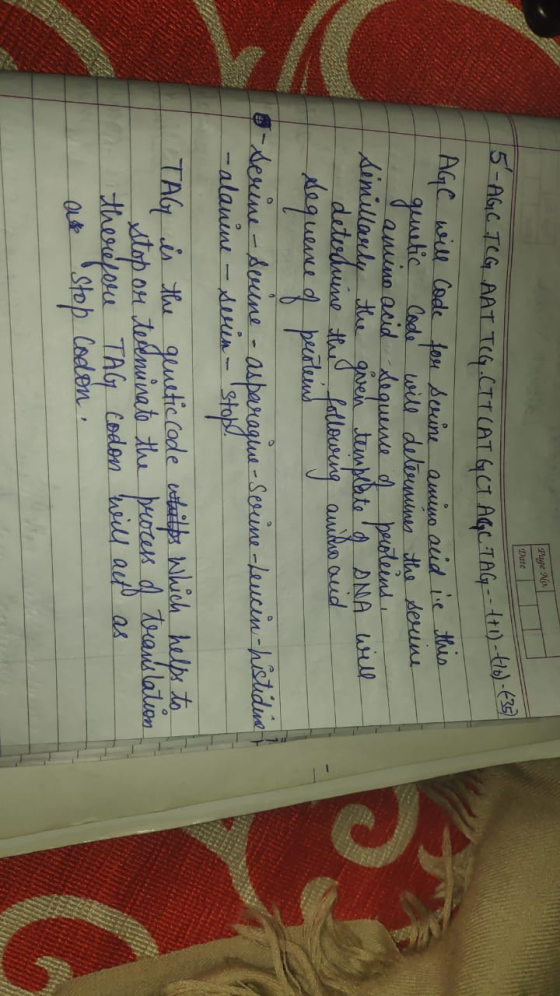 Page No.
Date
5'-AGC TCG AAT TCG CTT CAT GCT AGC TAG--(+1)-(-10)-(-35)
AGC will code for serine amino acid i.e this
genetic code will determines the serine
amino acid sequence of proteins.
Similarly the given template of DNA will
determine the following amino acid
sequence of protein
- Serine - Serine - asparagine - Serine - Leucin - histidine
- alanine - Serin - Stop
TAG is the genetic code which helps to
stop or terminate the process of translation
therefore TAG codon will act as
as stop codon.